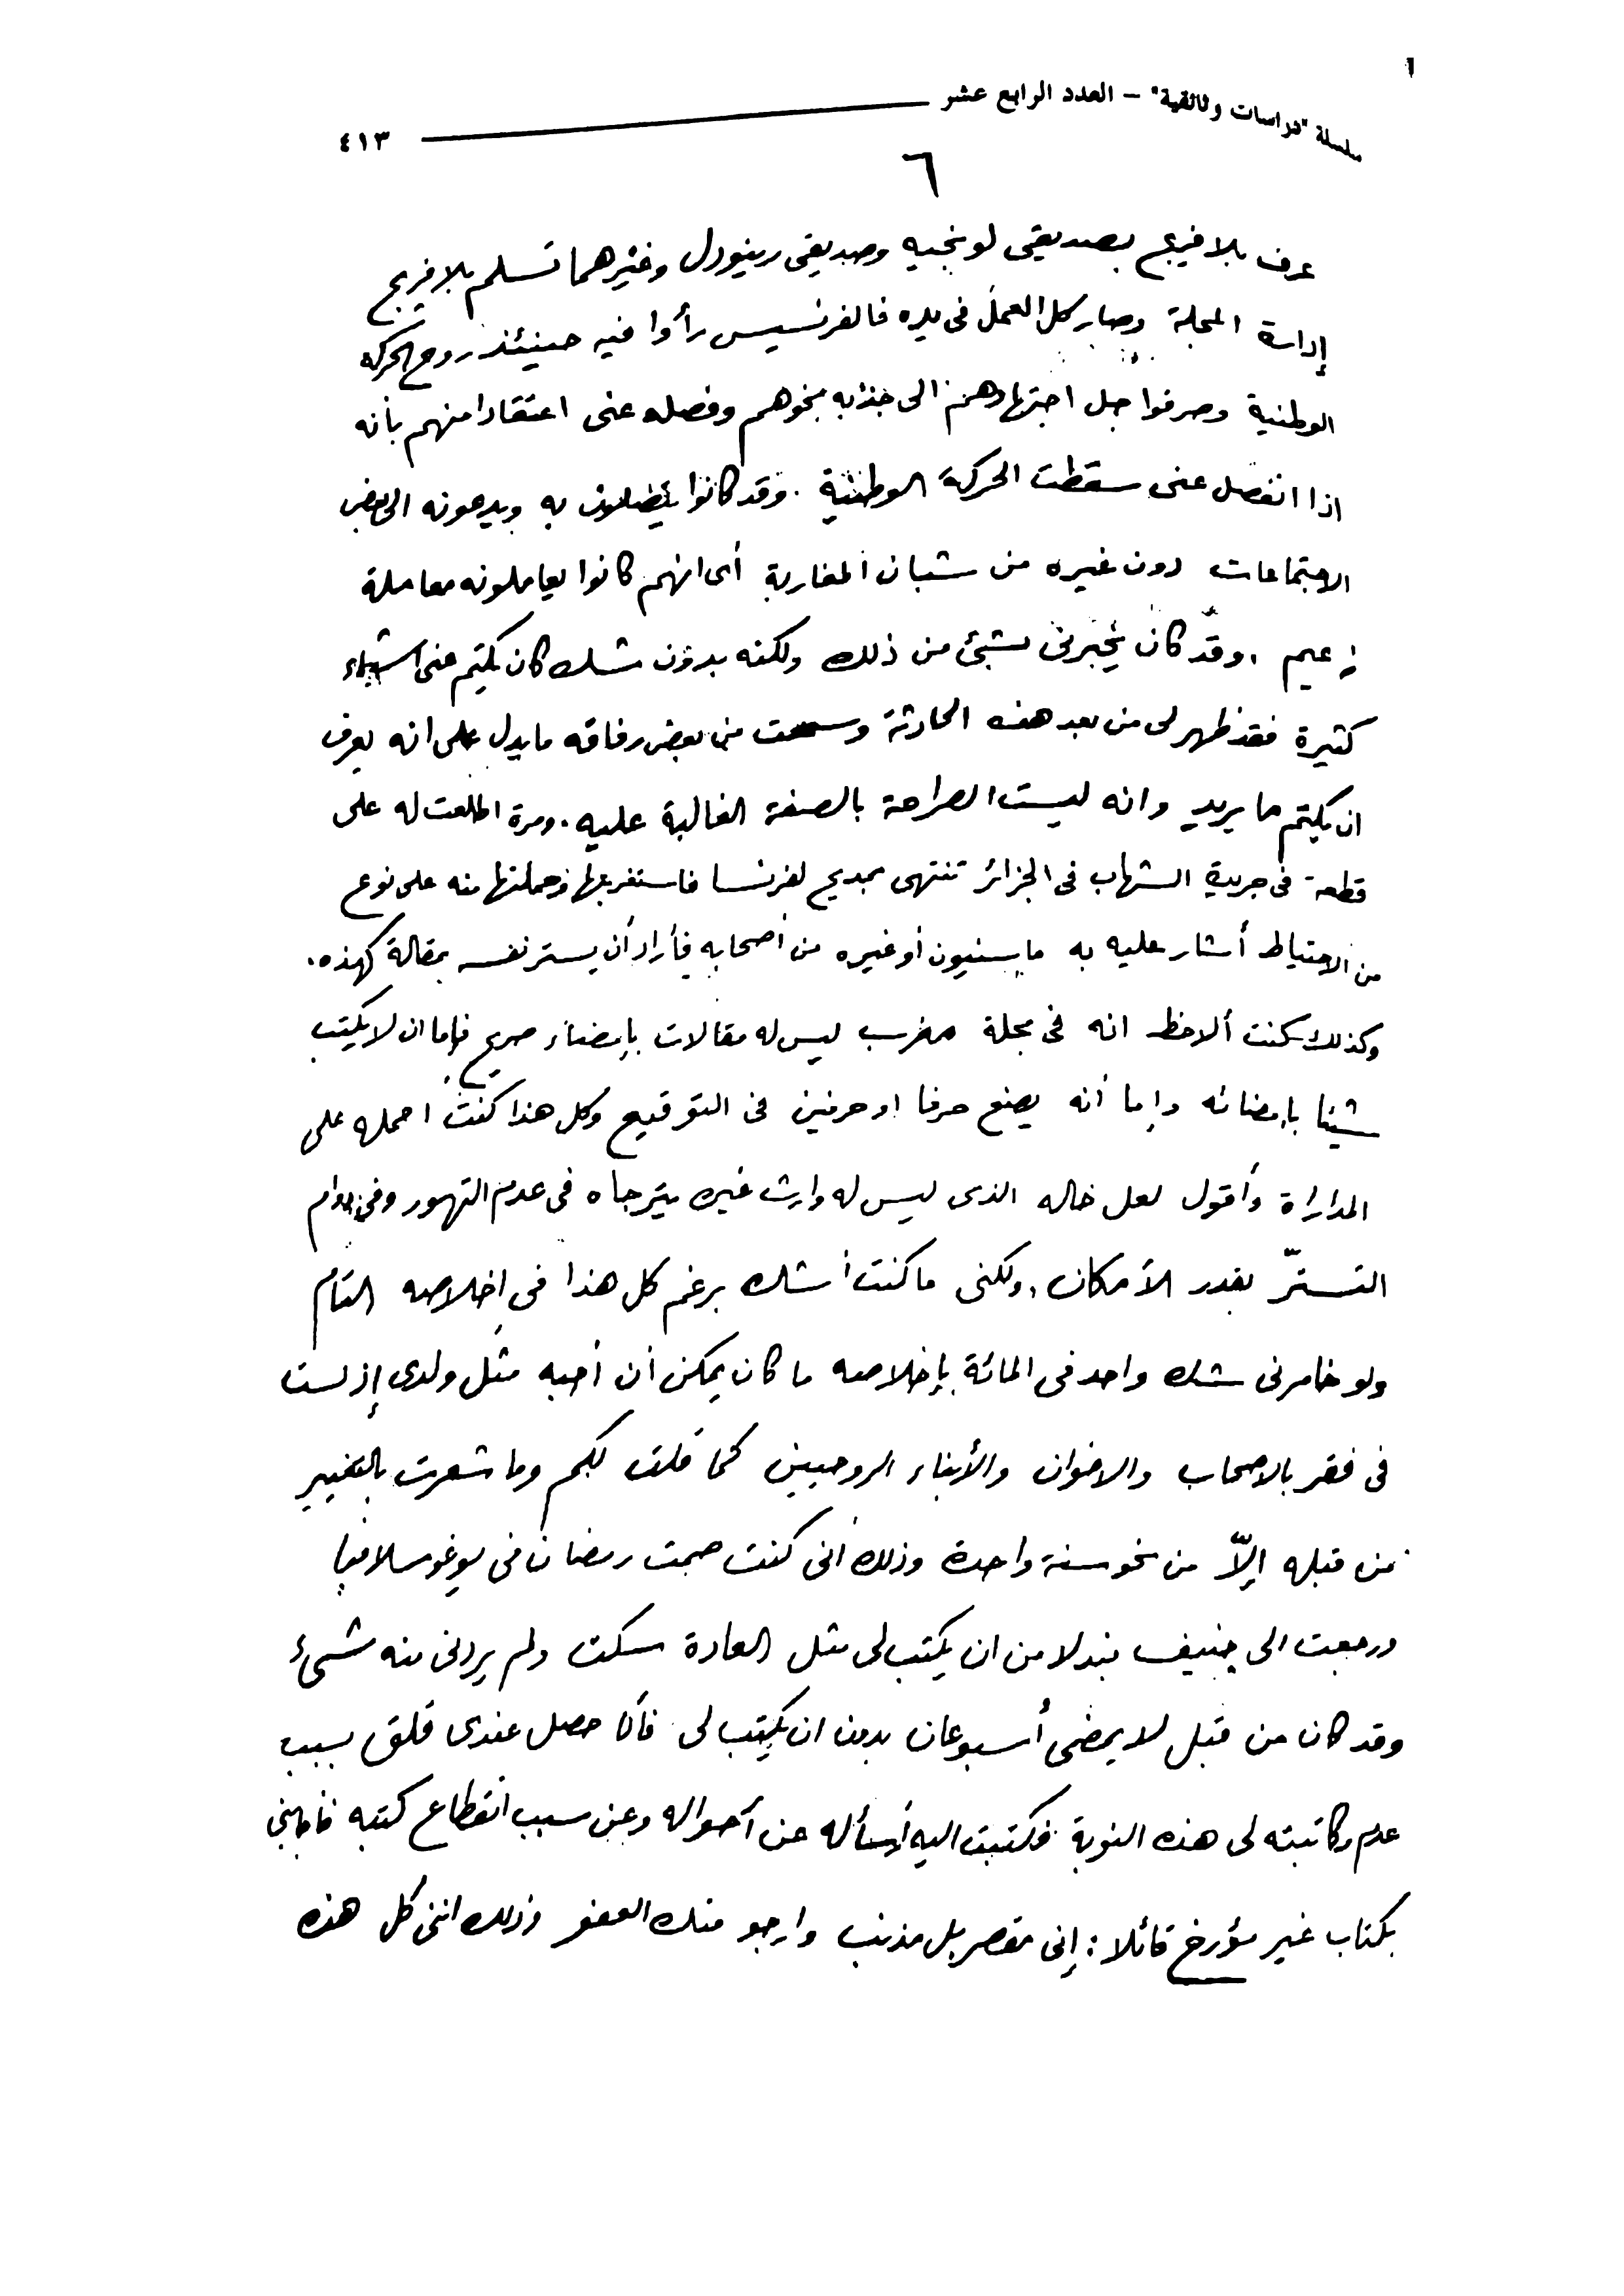 سلسلة "دراسات وثائقية" – العدد الرابع عشر ٤١٣
٦
عرف بلافريج بصديقي لونجيه وصديقي رينودل وغيرهما تسلم بلافريج
إدارة المجلة وصار كل العمل في يده فالفرنسيس رأوا فيه حينئذ روح الحركة
الوطنية وصرفوا جل اجتهادهم الى جذبه نحوهم وفصله عنى اعتقادا منهم بأنه
اذا انفصل عنى سقطت الحركة الوطنية. وقد كانوا به ويدعونه الى بعض
الاجتماعات دون غيره من شبان المغاربة أى انهم كانوا يعاملونه معاملة
زعيم، وقد كان يخبرنى بشئ من ذلك ولكنه بدون شك كان يكتم عنى اشياء
كثيرة فقد ظهر لى من بعد هذه الحادثة وسمعت من بعض رفاقه ما يدل على انه يعرف
ان يكتم ما يريد وانه ليست الصراحة بالصفة الغالبة عليه. ومرة اطلعت له على
قطعة فى جريدة الشهاب فى الجزائر تنتهى بمديح لفرنسا فاستغربتها وحملتها منه على نوع
من الاحتياط أشار عليه به ماسنيون أو غيره من أصحابه فأراد أن يستر نفسه بمقالة كهذه.
وكذلك كنت ألاحظ انه فى مجلة مغرب ليس له مقالات بإمضاء صريح فإما ان لا يكتب
شيئا بإمضائه وإما أنه يصنع حرفا او حرفين فى التوقيع وكل هذا كنت احمله على
المداراة وأقول لعل خاله الذى ليس له وارث غيره يترجاه فى عدم التهور وفى دوام
التستّر بقدر الأمكان، ولكنى ما كنت أشك برغم كل هذا فى إخلاصه التام
ولو خامرنى شك واحد فى المائة بإخلاصه ما كان يمكن أن أحبه مثل ولدى إذ لست
فى فقر بالاصحاب والاخوان والأبناء الروحيين كما قلت لكم وما شعرت بالتغيير
من قبله إلاّ من نحو سنة واحدة وذلك أنى كنت صمت رمضان فى يوغوسلافيا
ورجعت الى جنيف فبدلا من ان يكتب لى مثل العادة سكت ولم يردنى منه شىء
وقد كان من قبل لا يمضى أسبوعان بدون ان يكتب لى فأنا حصل عندى قلق بسبب
عدم مكاتبته لى هذه النوبة فكتبت اليه أسأله عن أحواله وعن سبب انقطاع كتبه فأجابنى
بكتاب غير مؤرخ قائلا: إنى مقصر بل مذنب وارجو منك العفو وذلك اننى كل هذه